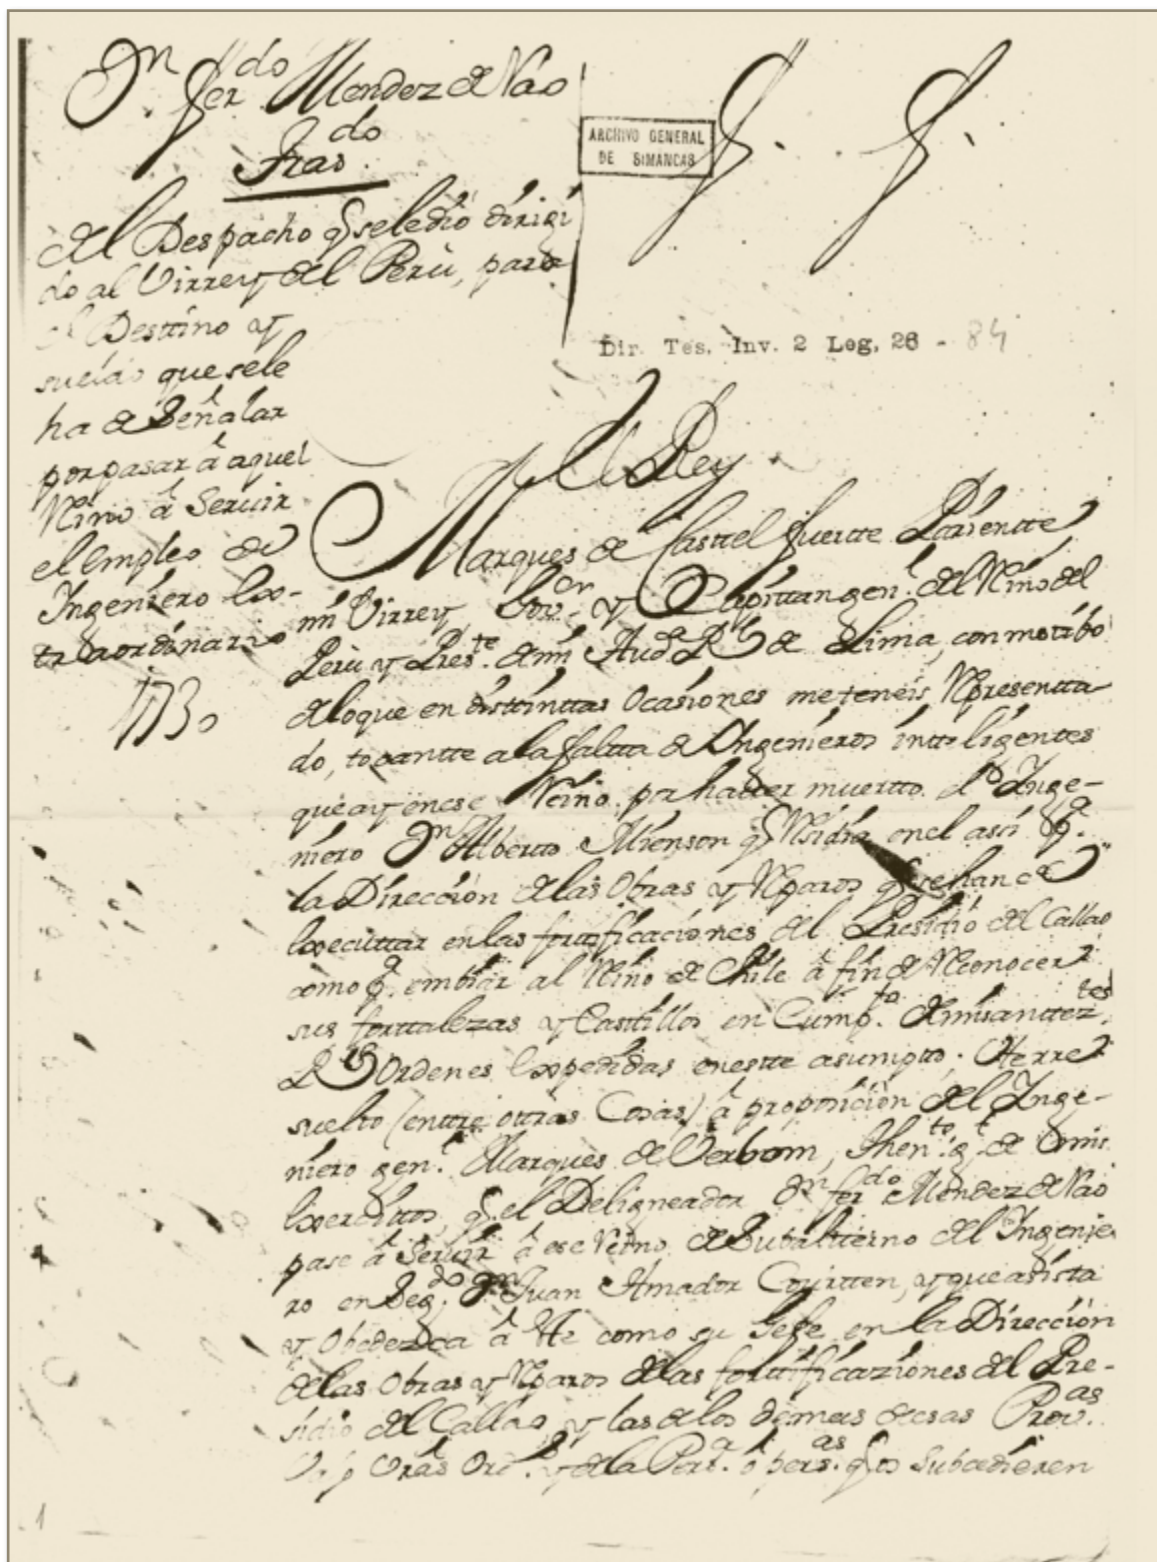 Dn Ferdo Mendez de Nao
Trasdo
del Despacho q se le dió dirigi
do al Virrey del Perú, para
el Desttino y
sueldo que se le
ha de Señalar
por pasar â aquel
Rno â Servir
el empleo de
Ingeniero Ex-
traordinario
1730
ARCHIVO GENERAL
DE SIMANCAS
Dir. Tes. Inv. 2 Leg. 26 - 84
El Rey
Marques de Casttel fuertte Parientte
mi Virrey, Govor y Capittan genl del Rno del
Perú y Preste de mi Audª Rl de Lima, con motibo
de loque en disttinttas ocasiones me teneis Representta-
do, tocantte a la faltta de Ingenieros intteligentes
que ay en ese Reino por haver muertto el Inge-
niero Dn Alberto Mienson q Residia en el asi pª
la Dirección de las Obras y Reparos q se han de
Executtar en las forttificaciones del Presidio del Callao
como pª embiar al Rno de Chile â fin de Reconocer
sus forttalezas y Casttillos en Cumpto de mis antteztes
Rs Ordenes Expedidas en estte asumptto; He rre-
suelto (enttre ottras Cosas) â proposición del Inge-
niero genl Marqués de Verbom, Thento gl de mis
Exercittos, q el Deligneador Dn ferdo Mendez de Nao
pase â Servir â ese Reino de Subaltterno del Ingenie-
ro en Segdo Dn Juan Amador Courtten, y que asista
y Obedezca â Ste como su Gefe en la Dirección
de las Obras y Reparos de las forttificaziones del Pre-
sidio del Callao y las de los demas de esas Provas
Vajo Vras Ords y de la Perª ó persas q os Subcedieren
1